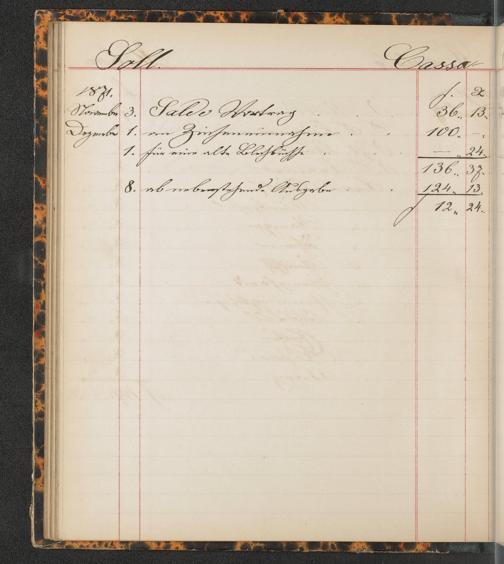 Soll. Cassa
1871. f. x
November 3. Saldo Vortrag 36. 13.
Dezember 1. an Zinseneinnahme 100. –.
1. für eine alte Blechbüchse – 24.
136. 37.
8. ab nebenstehende Ausgabe 124. 13.
f 12. 24.